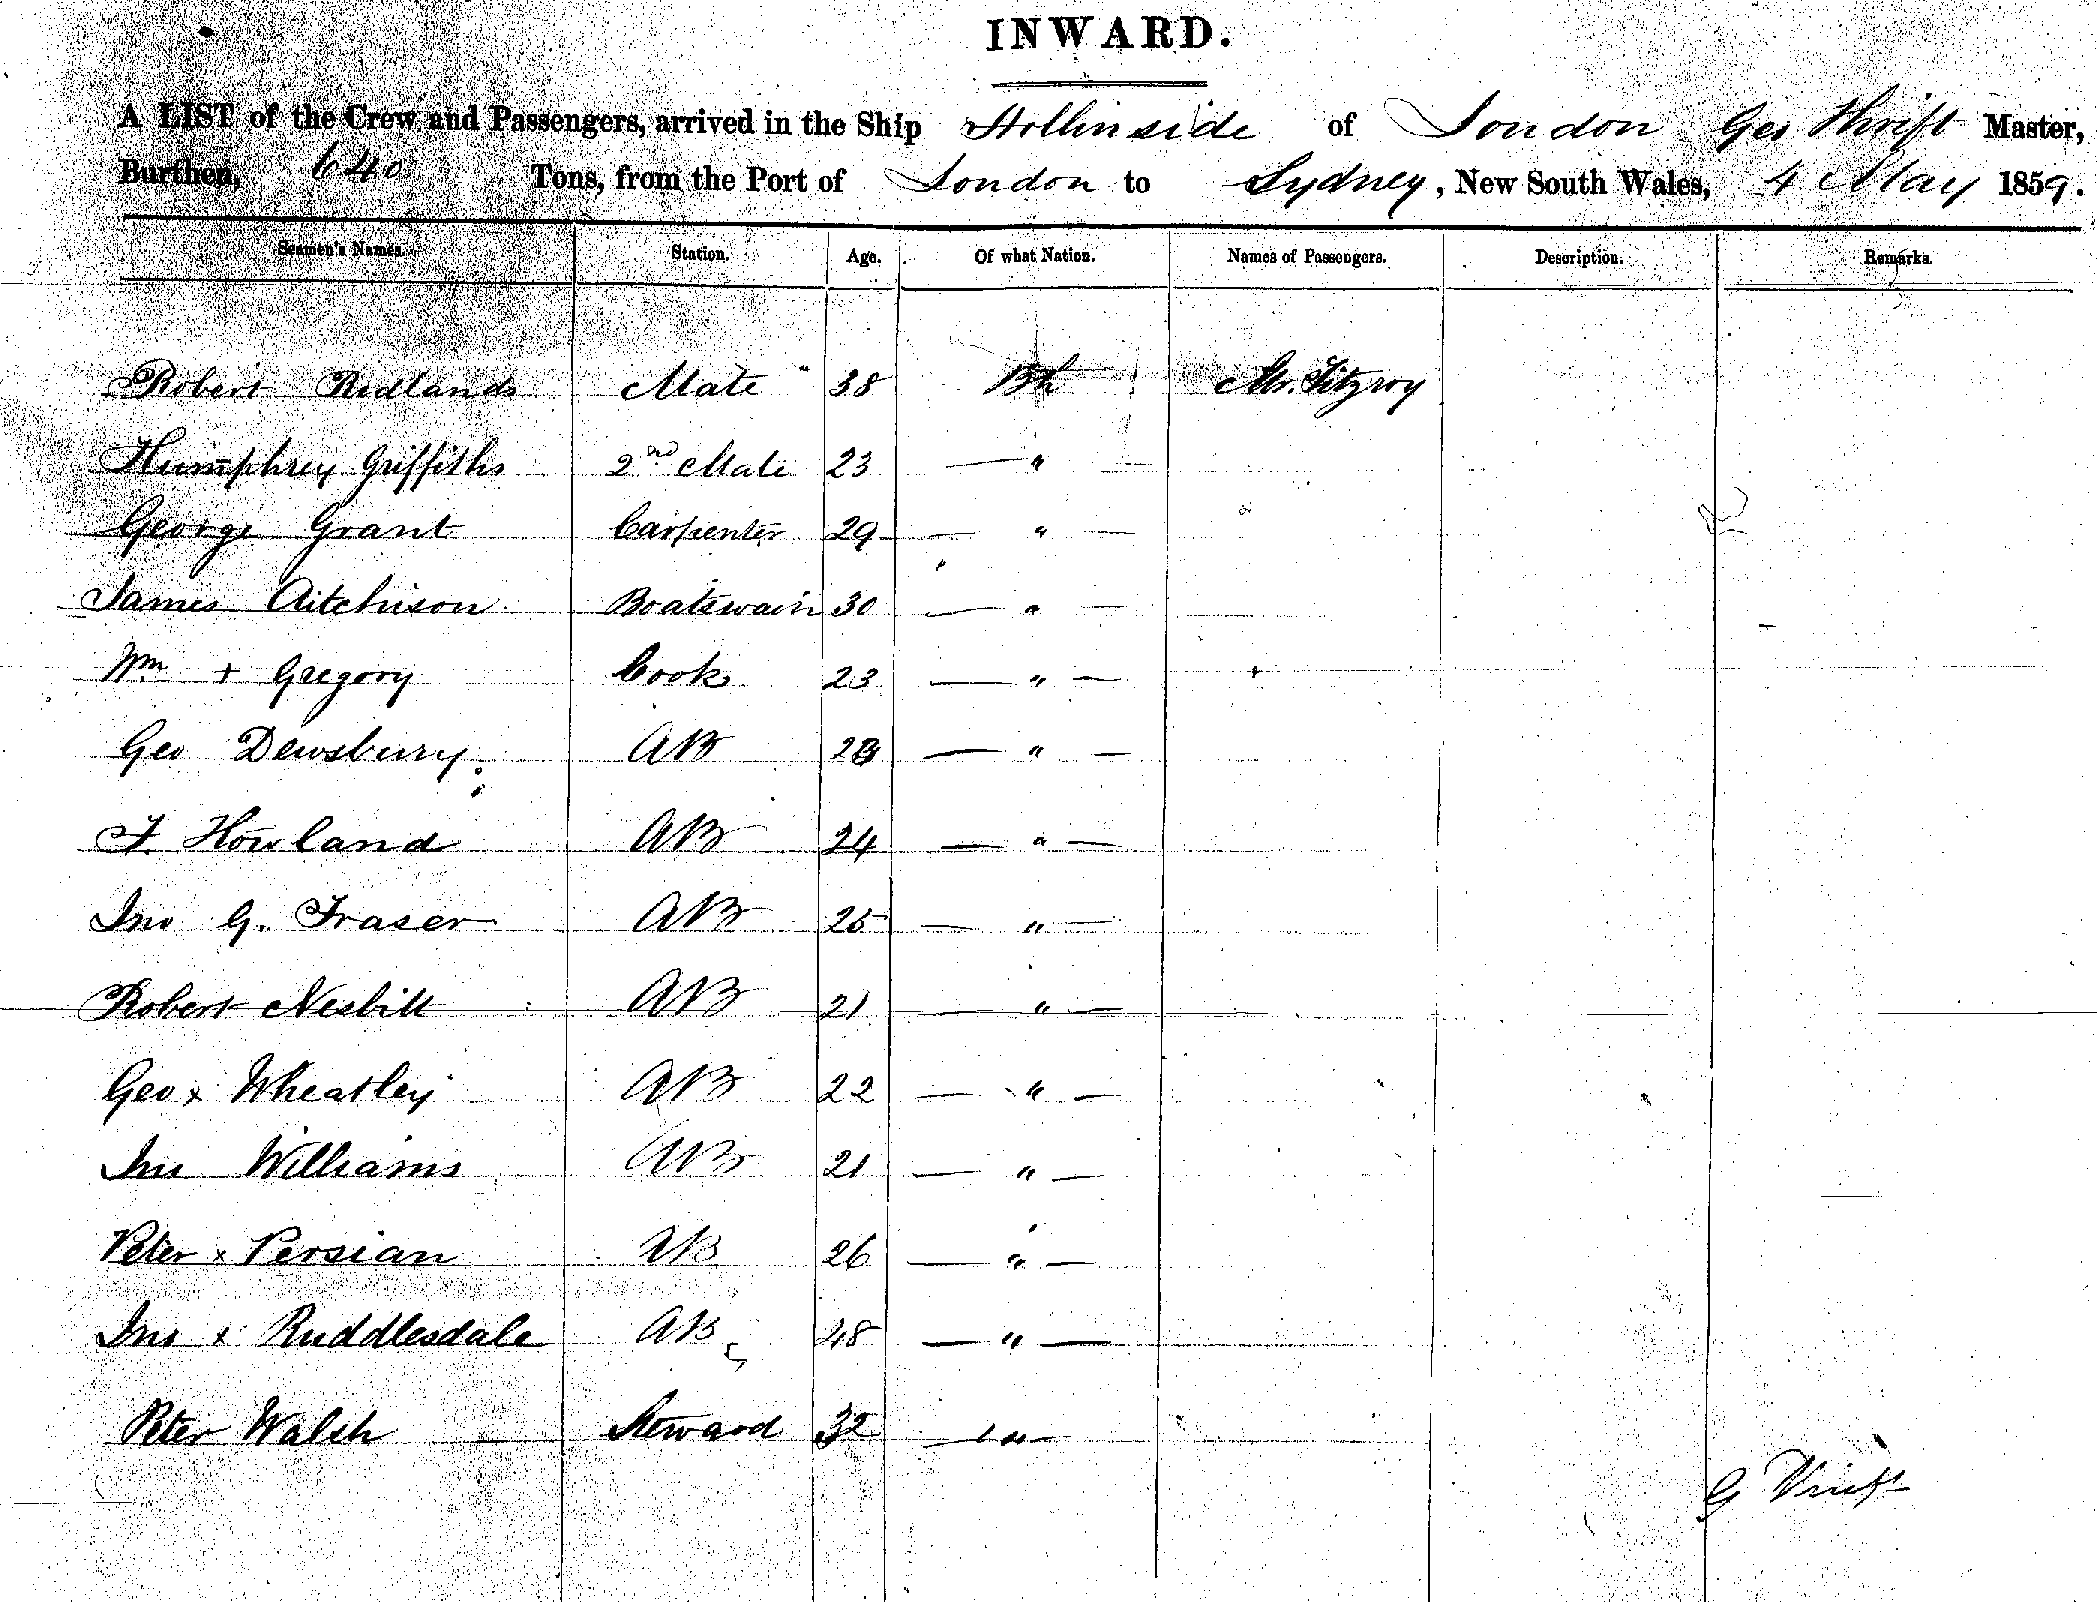 INWARD.
A LIST of the Crew and Passengers, arrived in the Ship Hollinside of London Geo Thrift Master,
Burthen, 640 Tons, from the Port of London to Sydney, New South Wales, 4 May 1859.
Seamen's Names. Station. Age. Of what Nation. Names of Passengers. Description. Remarks.
Robert Redlands Mate " 38 Bh Mr. Fitzroy
Humphrey Griffiths 2nd Mate 23 — " —
George Grant Carpenter 29 — " —
James Aitchison Boatswain 30 — " —
Wm + Gregory Cook 23 — " —
Geo Dewsberry AB — " —
F. Howland AB 24 — " —
Jno G. Fraser AB 25 — " —
Robert Nesbitt AB 21 — " —
Geo x Wheatley AB 22 — " —
Jno Williams AB 21 — " —
Peter x Persian AB 26 — " —
Jno x Ruddlesdale AB 48 — " —
Peter Walsh Steward 32 — " —
G Thrift